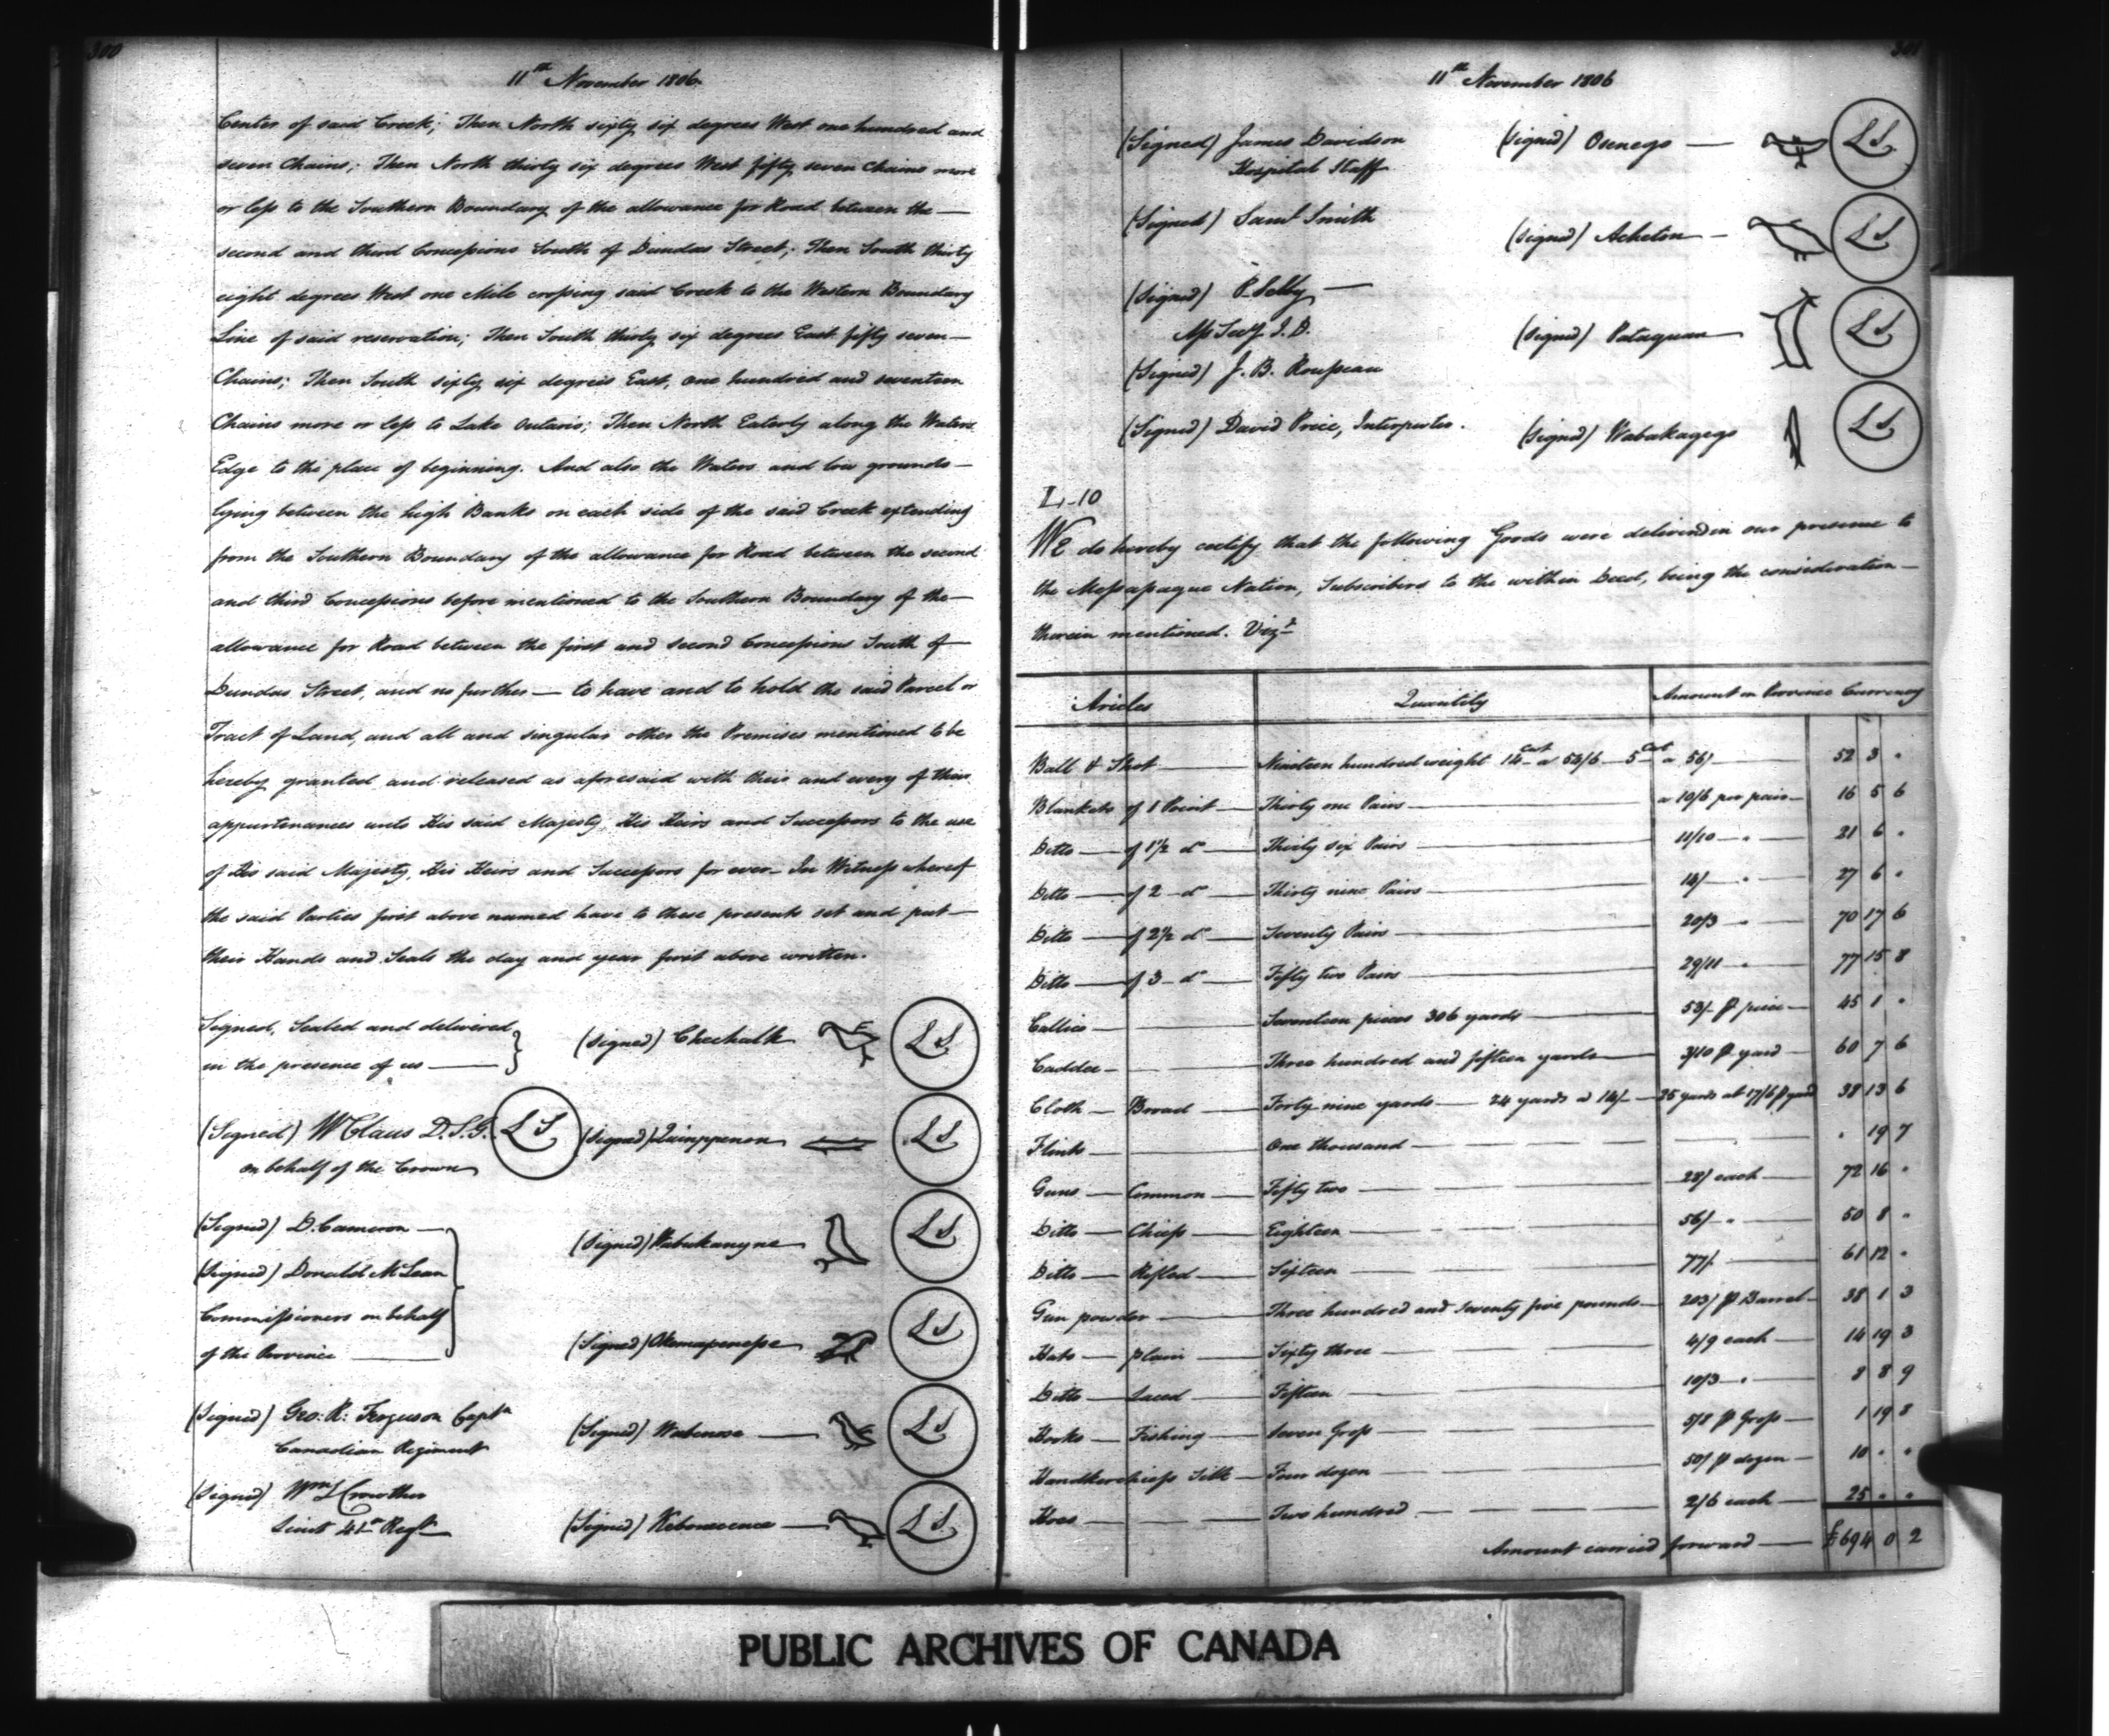 300
11th November 1806.
Center of said Creek; Then North sixty six degrees West one hundred and
seven Chains; Then North thirty six degrees West fifty seven Chains more
or less to the Southern Boundary of the allowance for Road between the —
second and third Concessions South of Dundas Street; Then South thirty
eight degrees West one Mile crossing said Creek to the Western Boundary
Line of said reservation; Then South thirty six degrees East fifty seven —
Chains; Then South sixty six degrees East, one hundred and seventeen
Chains more or less to Lake Ontario; Then North Eaterly along the Waters
Edge to the place of beginning. And also the Waters and low grounds —
lying between the high Banks on each side of the said Creek extending
from the Southern Boundary of the allowance for Road between the second
and third Concessions before mentioned to the Southern Boundary of the —
allowance for Road between the first and second Concessions South of
Dundas Street, and no further — to have and to hold the said Parcel or
Tract of Land, and all and singular other the Premises mentioned to be
hereby granted and released as aforesaid with their and every of their
appurtenances unto His said Majesty, His Heirs and Successors to the use
of His said Majesty, His Heirs and Successors for ever — In Witness whereof
the said Parties first above named have to these presents set and put —
their Hands and Seals the day and year first above written.
Signed, Sealed and delivered
in the presence of us —
(Signed) Chechalk LS
(Signed) W Claus D.S.G. LS
on behalf of the Crown
(Signed) Quinippenon LS
(Signed) D. Cameron —
(Signed) Wabukanyne LS
(Signed) Donald McLean
Commissioners on behalf
of the Province —
(Signed) Okemapenesse LS
(Signed) Geo: R: Ferguson Captn
Canadian Regiment
(Signed) Wabenose — LS
(Signed) Wm Crowther
Lieut 41st Regt
(Signed) Kebonecence — LS
301
11th November 1806
(Signed) James Davidson
Hospital Staff
(Signed) Osenego — LS
(Signed) Saml Smith
(Signed) Acheton — LS
(Signed) P. Selby —
Ass Secy I. D.
(Signed) Pataquan LS
(Signed) J. B. Rousseau
(Signed) David Price, Interpreter.
(Signed) Wabakagego LS
L-10
We do hereby certify that the following Goods were delivered in our presence to
the Messasague Nation, Subscribers to the within Deed, being the consideration —
therein mentioned. Vizt
Aricles Quantity Amount in Province Currency
Ball & Shot — Nineteen hundred weight 14 cwt a 54/6 — 5 cwt a 56/ 52 3 "
Blankets of 1 Point — Thirty one Pairs — a 10/6 per pair — 16 5 6
Ditto — of 1½ do — Thirty six Pairs — 11/10 — " — 21 6 "
Ditto — of 2 — do — Thirty nine Pairs — 14/ — " 27 6 "
Ditto — of 2½ do — Seventy Pairs — 20/3 " — 70 17 6
Ditto — of 3 — do — Fifty two Pairs — 29/11 " — 77 15 8
Callico — Seventeen pieces 306 yards — 53/ ⅌ piece — 45 1 "
Caddee — Three hundred and fifteen yards — 3/10 ⅌ yard — 60 7 6
Cloth — Broad — Forty nine yards — 24 yards a 14/ — 25 yards at 17/6 ⅌ yard 38 13 6
Flints — One thousand — " 19 7
Guns — Common — Fifty two — 28/ each — 72 16 "
Ditto — Chiefs — Eighteen — 56/ " — 50 8 "
Ditto — Rifled — Sixteen — 77/ — 61 12 "
Gun powder — Three hundred and seventy five pounds — 203/ ⅌ Barrel — 38 1 3
Hats — plain — Sixty three — 4/9 each — 14 19 3
Ditto — Laced — Fifteen — 10/3 — " — 8 8 9
Hooks — Fishing — Seven Gross — 5/8 ⅌ Gross — 1 19 8
Handkerchiefs Silk — Four dozen — 50/ ⅌ dozen — 10 " "
Hoes — Two hundred — 2/6 each — 25 " "
Amount carried forward — £694 0 2
PUBLIC ARCHIVES OF CANADA